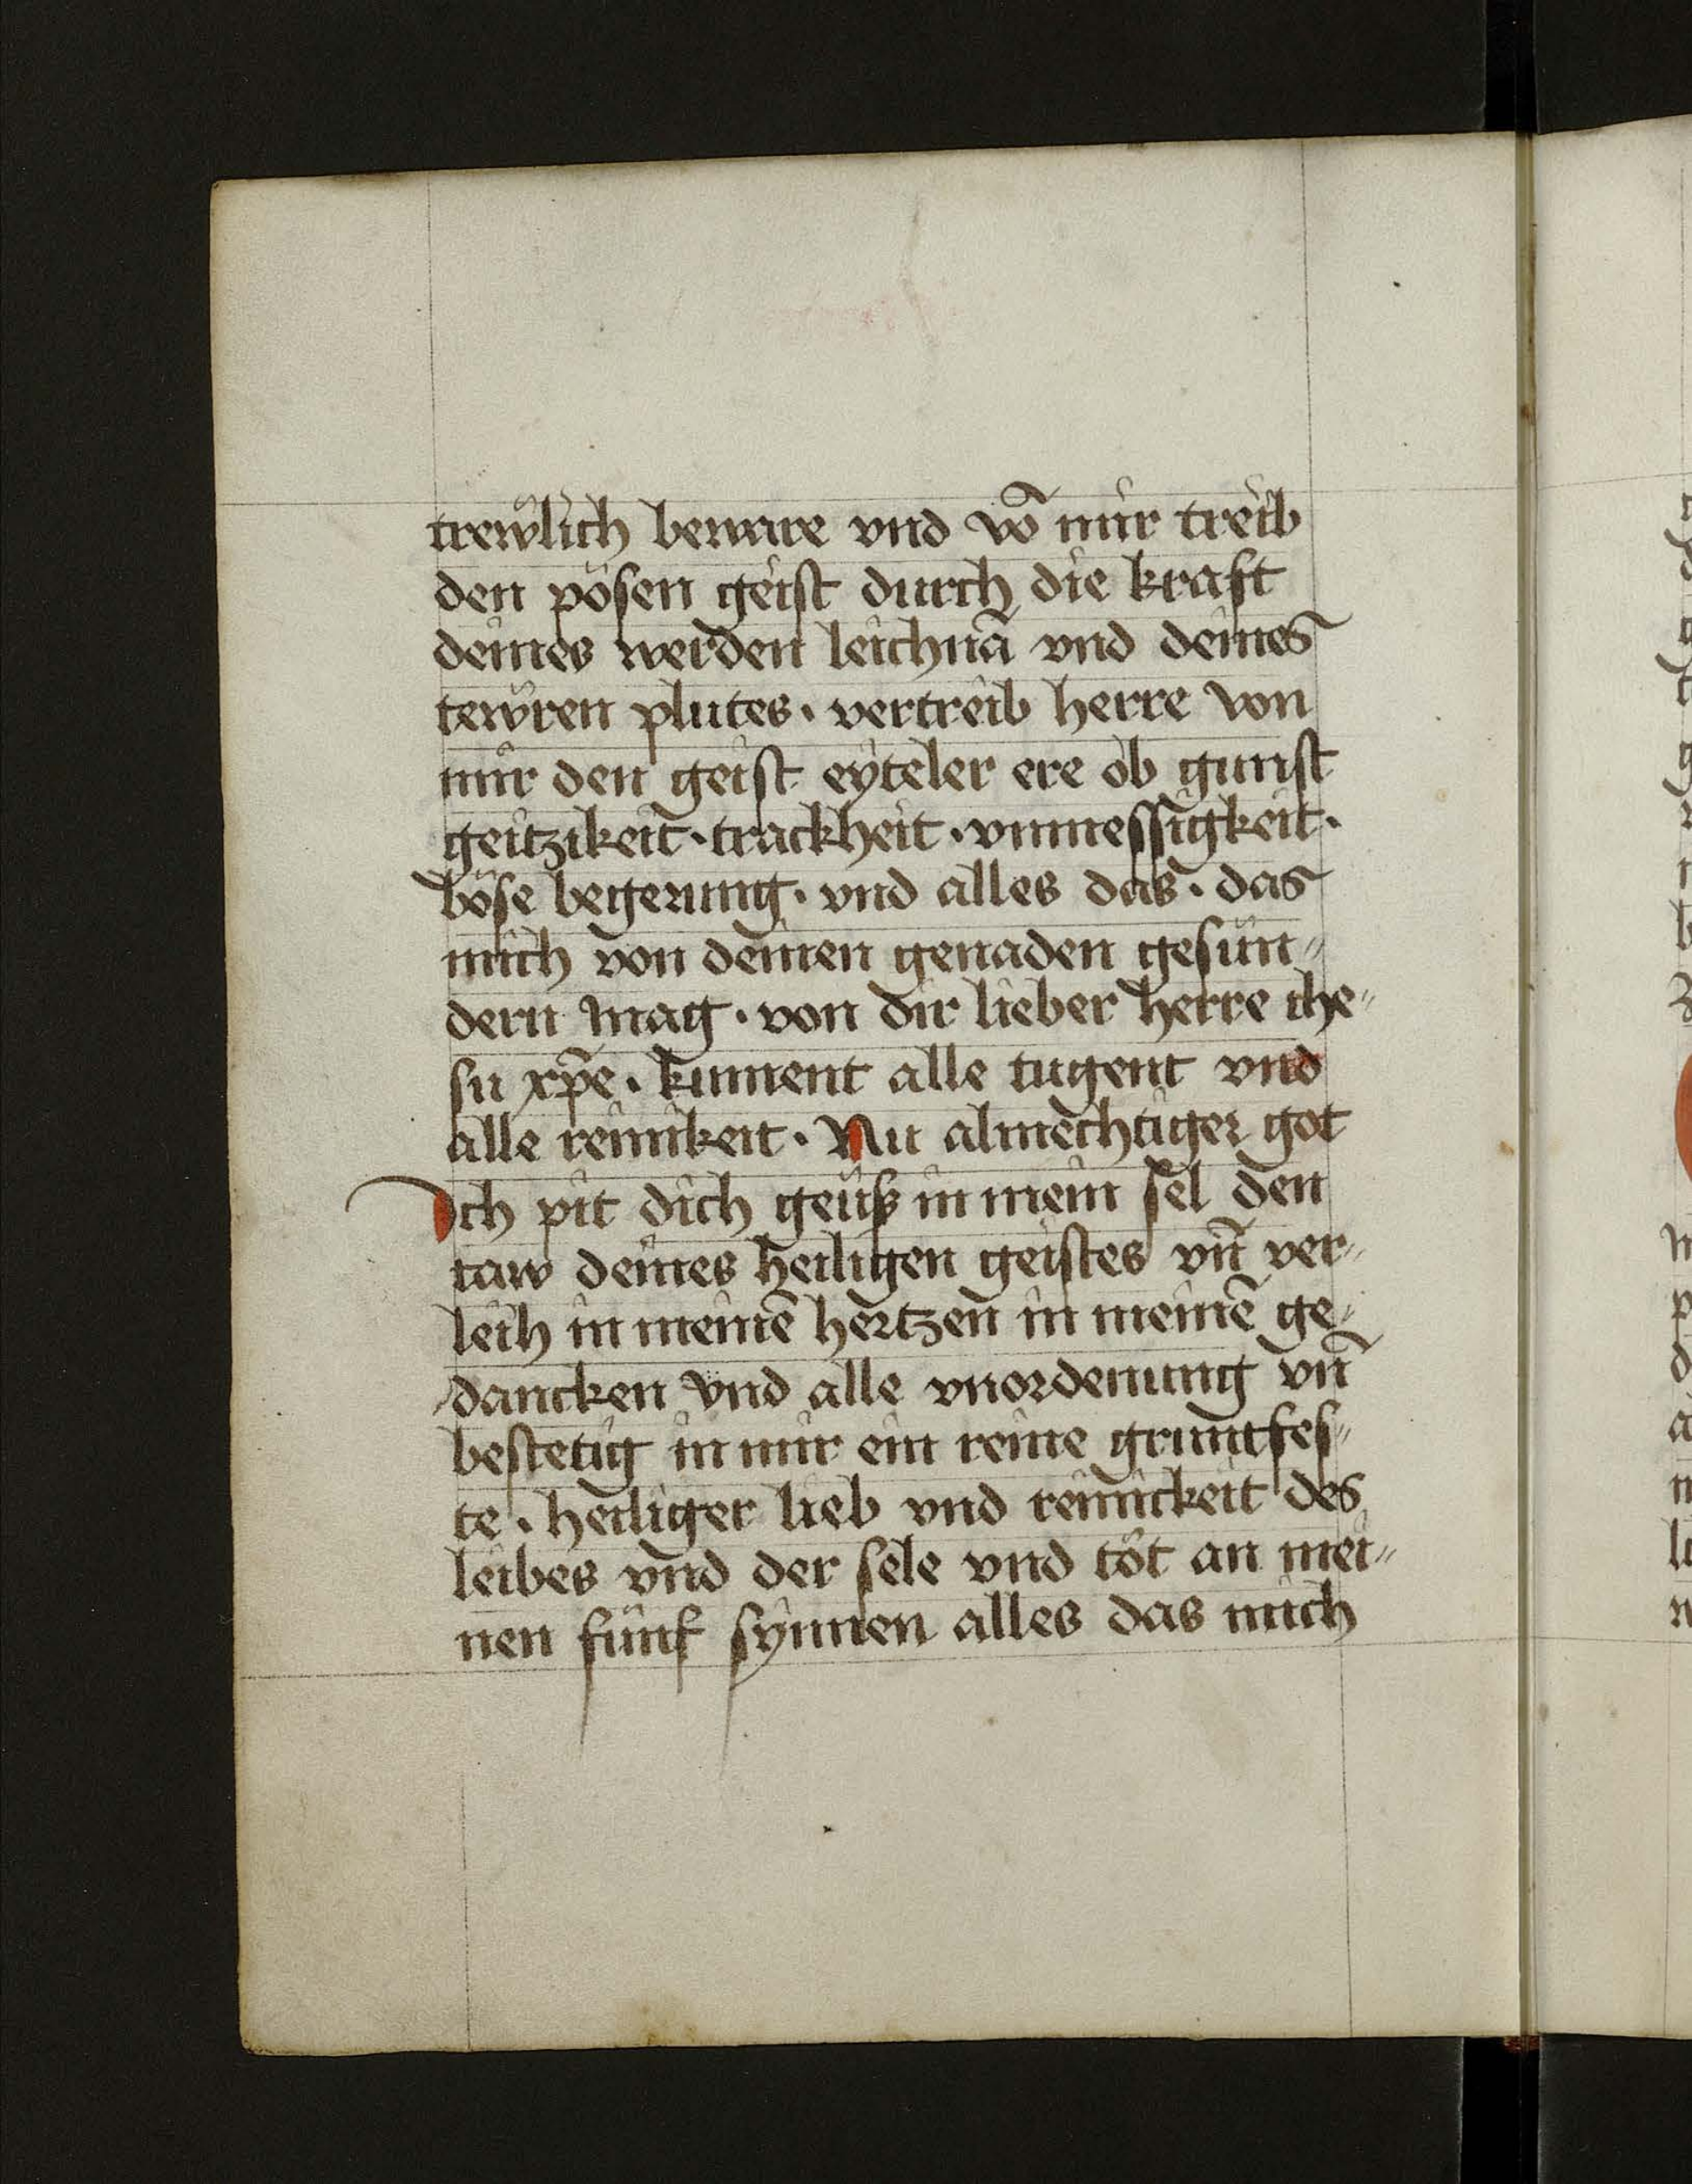 trewlich beware vnd võ mir treib
den pösen geist durch die kraft
deines werden leichnã vnd deines
tewren plutes · vertreib herre von
mir den geist eyteler ere ob gunst
geitzikeit · trackheit · vnmessigkeit ·
böse begerung · vnd alles das · das
mich von deinen genaden gesün〟
dern mag · von dir lieber herre ihe〟
su xp̃e · kument alle tugent vnd
alle reinikeit · Nu almechtiger got
Ich pit dich geuß in mein sel den
taw deines heiligen geistes vñ ver〟
leih in meinẽ hertzen in meinẽ ge〟
dancken vnd alle vnordenung vñ
bestetig in mir ein reine gruntfes〟
te · heiliger lieb vnd reinickeit des
leibes vnd der sele vnd töt an mei〟
nen fünf synnen alles das mich